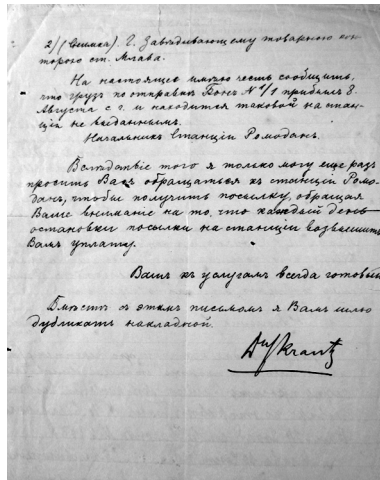 2/ (Снимка). Г. Завѣдивающему товарною кон-
торою ст. Млава.
На настоящее имѣю честь сообщить,
что грузъ по отправкѣ Бонъ № 1/1 прибылъ 8.
Августа с. г. и находится таковой на стан-
ціи не выданнымъ.
Начальникъ Станціи Ромоданъ.
Вслѣдствіе того я только могу еще разъ
просить Васъ обращаться къ станціи Ромо-
данъ, чтобы получить посылку, обращая
Ваше внимание на то, что каждый день
остановки посылки на станціи возвысить
Вамъ уплату.
Вашъ къ услугамъ всегда готовый
Вмѣстѣ съ этимъ письмомъ я Вамъ шлю
дубликатъ накладной.
Krantz